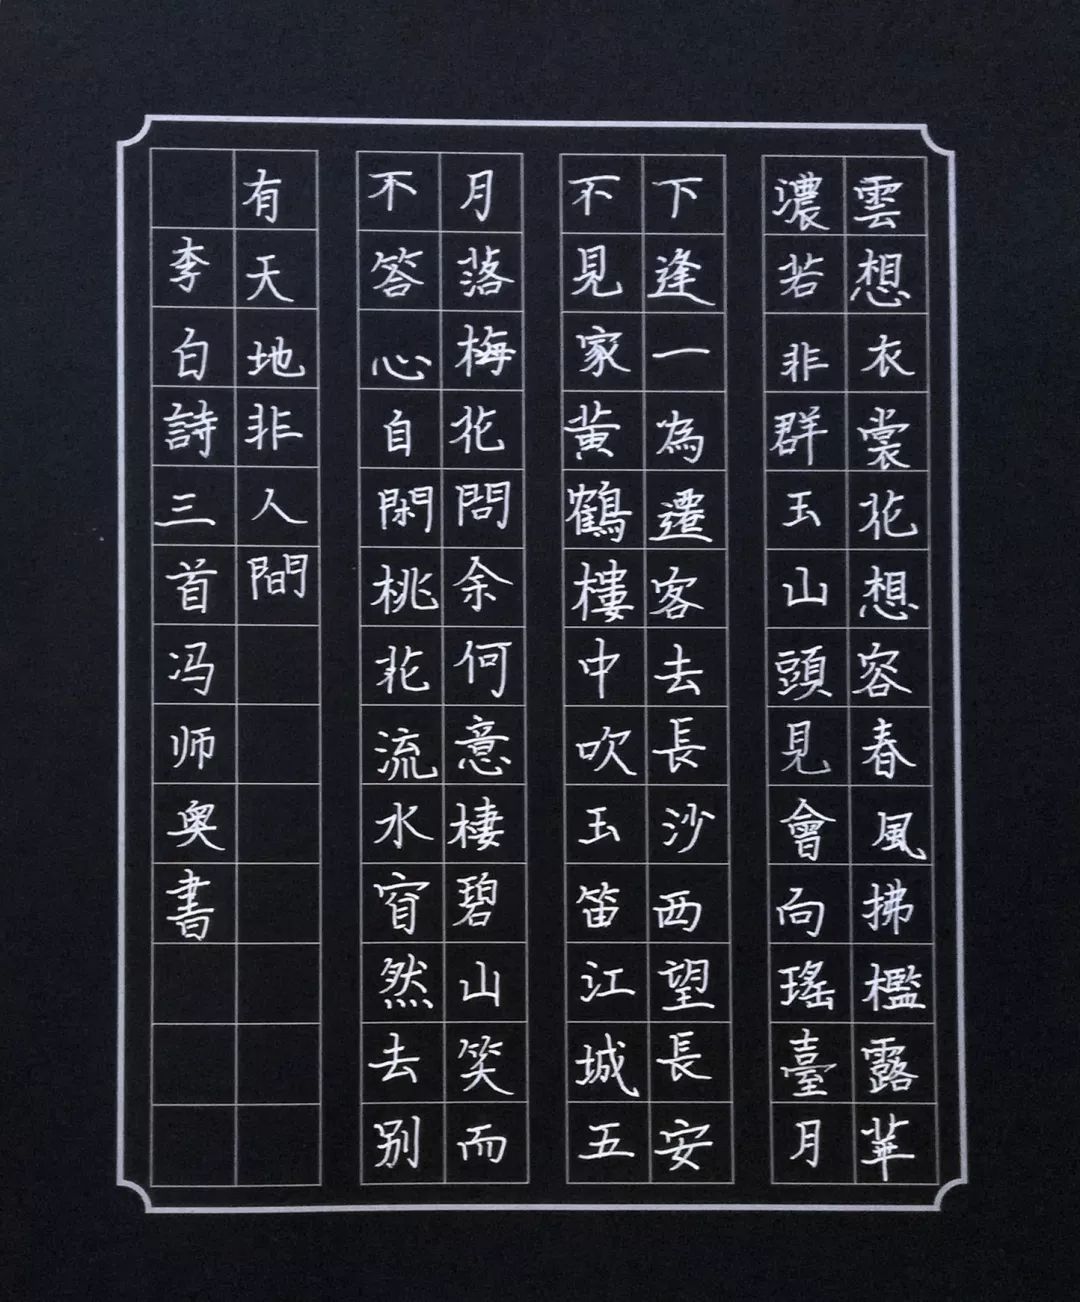 雲想衣裳花想容春風拂檻露華
濃若非群玉山頭見會向瑤臺月
下逢一為遷客去長沙西望長安
不見家黃鶴樓中吹玉笛江城五
月落梅花問余何意棲碧山笑而
不答心自閑桃花流水窅然去别
有天地非人間
李白詩三首冯师奥書